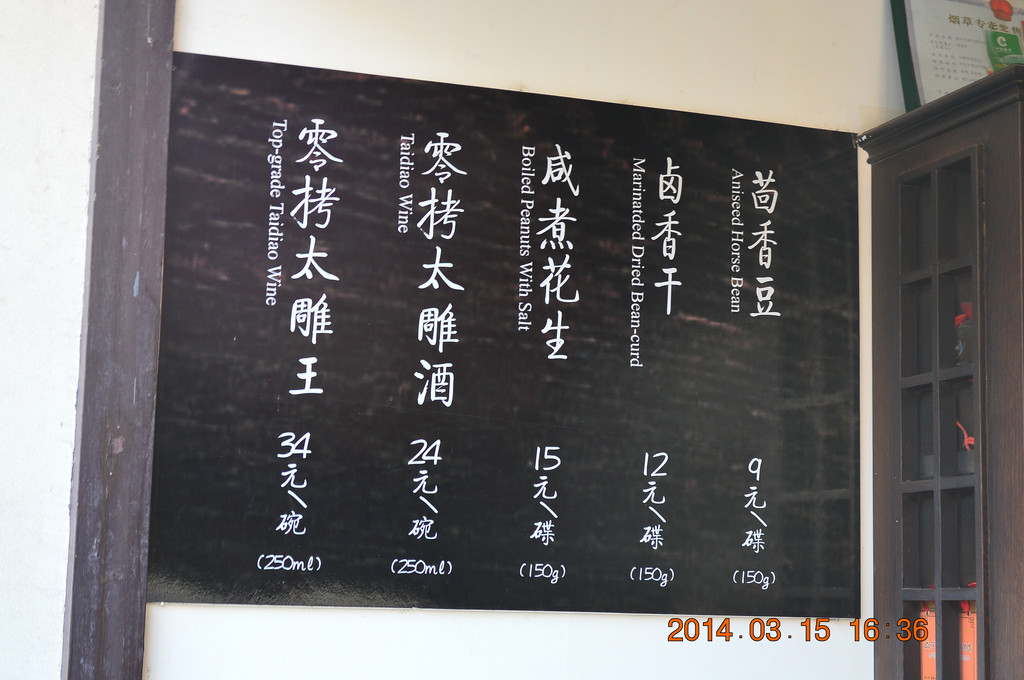 茴香豆
Aniseed Horse Bean
9元/碟
(150g)
卤香干
Marinatded Dried Bean-curd
12元/碟
(150g)
咸煮花生
Boiled Peanuts With Salt
15元/碟
(150g)
零拷太雕酒
Taidiao Wine
24元/碗
(250ml)
零拷太雕王
Top-grade Taidiao Wine
34元/碗
(250ml)
烟草专卖
2014.03.15 16:36